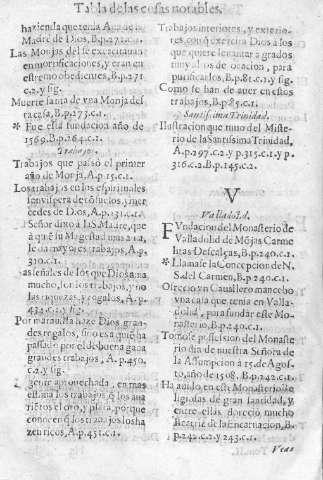 Tabla de las cosas notables.
hazienda que tenia Ana de la
Madre de Dios, B.p.272.c.1.
Las Monjas del se exercitauan
en mortificaciones, y eran en
estremo obedientes, B.p.271
c.2. y sig.
Muerte santa de vna Monja des
ta casa, B.p.273.c.1.
* Fue esta fundacion año de
1569. B.p.264.c.1.
Trabajo.
Trabajos que passó el primer
año de Monja, A.p.15.c.1.
Los trabajos en los espirituales
son vispera de consuelos, y mer
cedes de Dios, A.p.131.c.1.
Señor dixo a la S. Madre, que
a quien su Magestad mas ama,
le da mayores trabajos, A.p.
310.c.1.
las señales de los que Dios ama
mucho, son los trabajos, y no
las riquezas, y regalos, A.p.
432.c.1. y sig.
Por marauilla haze Dios gran-
des regalos, sino es a quien ha
passado por el de buena gana
grandes trabajos, A.p.450.
c.2. y sig.
gente aprouechada, en mas
estima los trabajos, que los aua
rientos el oro, y plata, porque
conocen que los trabajos los ha
zen ricos, A.p.451.c.1.
Trabajos interiores, y exterio-
res con que exercita Dios a los
que quiere leuantar a grados
muy altos de oracion, para
purificarlos, B.p.81.c.1. y sig.
Como se han de auer en estos
trabajos, B.p.85.c.1.
Santissima Trinidad.
Ilustracion que tuuo del Miste-
rio de la Santissima Trinidad,
A.p.297.c.2. y p.315.c.1. y p.
316.c.2. B.p.145.c.2.
V
Valladolid.
Fundacion del Monasterio de
Valladolid de Mõjas Carme
litas Descalças, B.p.240.c.1.
* Llamase la Concepcion de N.
S. del Carmen, B.p.240.c.1.
Ofrecio vn Cauallero mancebo
vna casa que tenia en Valla-
dolid, para fundar este Mo-
nasterio, B.p.240.c.1.
Tomose possession del Monaste
rio dia de nuestra Señora de
la Assumpcion a 15. de Agos-
to, año de 1568. B.p.242.c.1.
Ha auido en este Monasterio Re
ligiosas de gran santidad, y
entre ellas florecio mucho
Beatriz de la Encarnacion, B.
p.242.c.1. y 243.c.1.